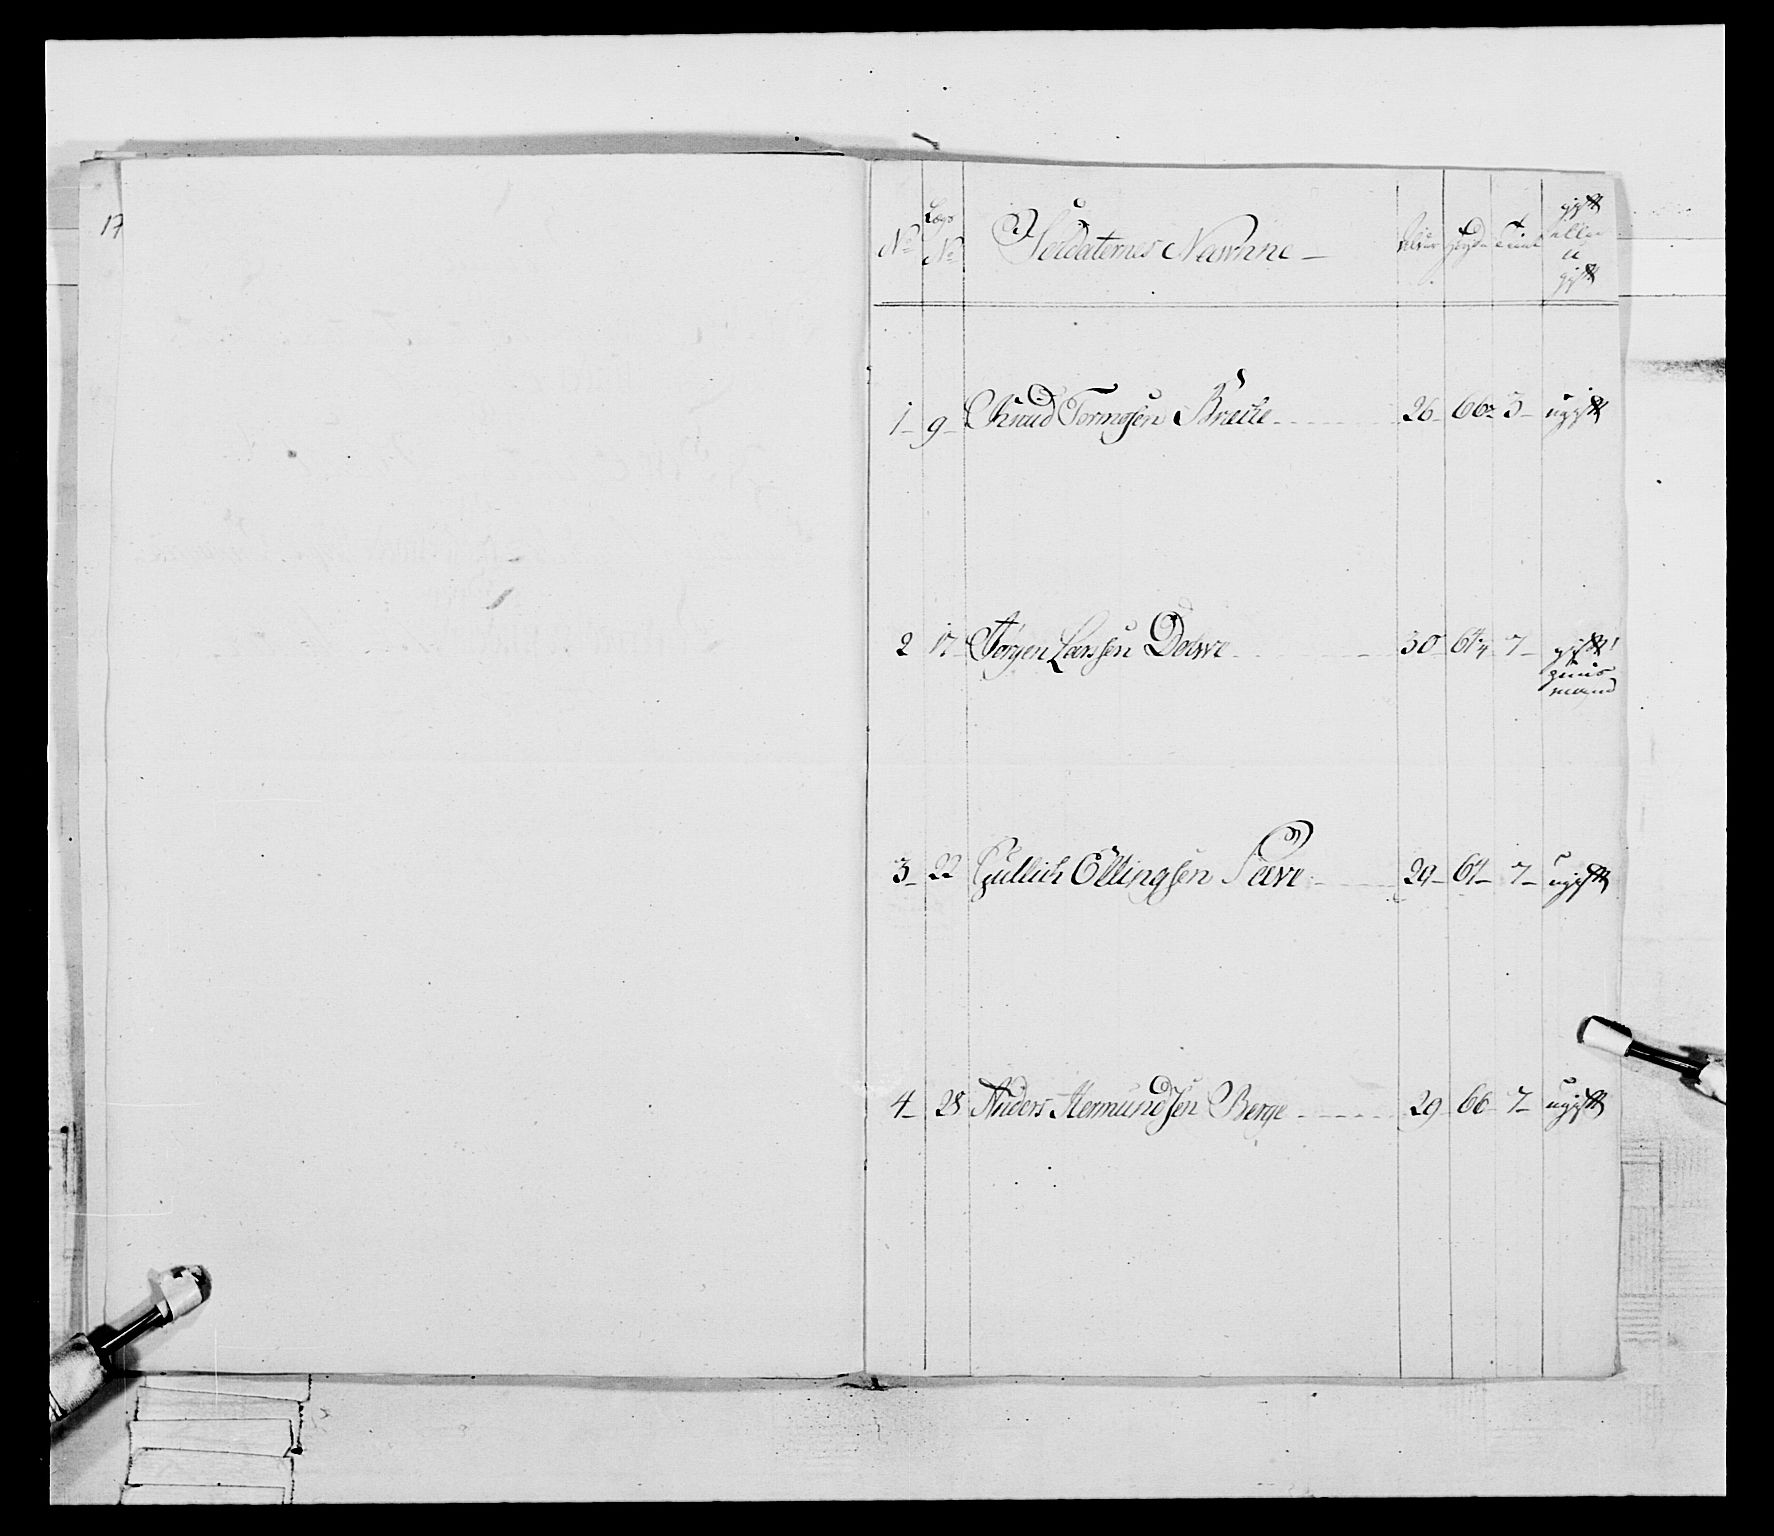 17
No Lægs No Soldaternes Nawne Alder Høyde Tient gift eller u gift
1 9 Knud Tormosen Breche 26 66 3 ugift
2 17 Jørgen Larssen Dowe 30 64 7 gift
huus
mand
3 22 Gullich Ellingsen Sewe 29 64 7 ugift
4 28 Anders Hermundsen Berge 29 66 7 ugift